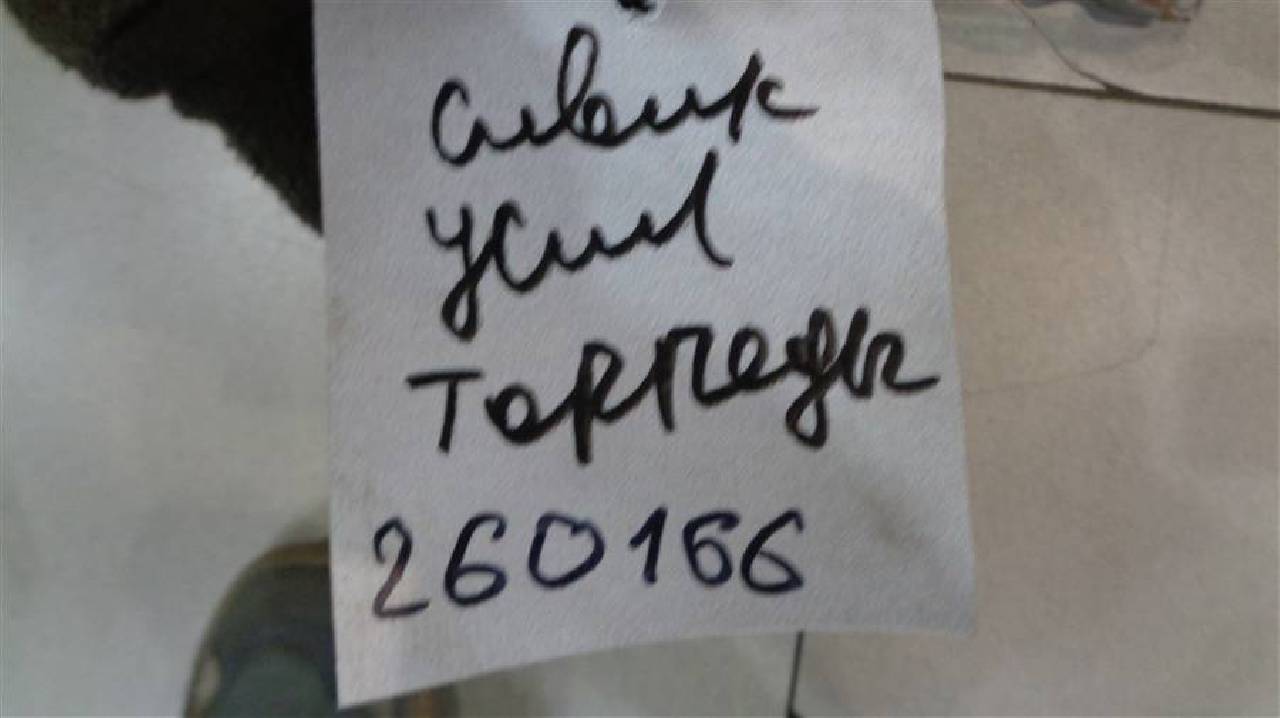 сивик
усил
торпеды
260166